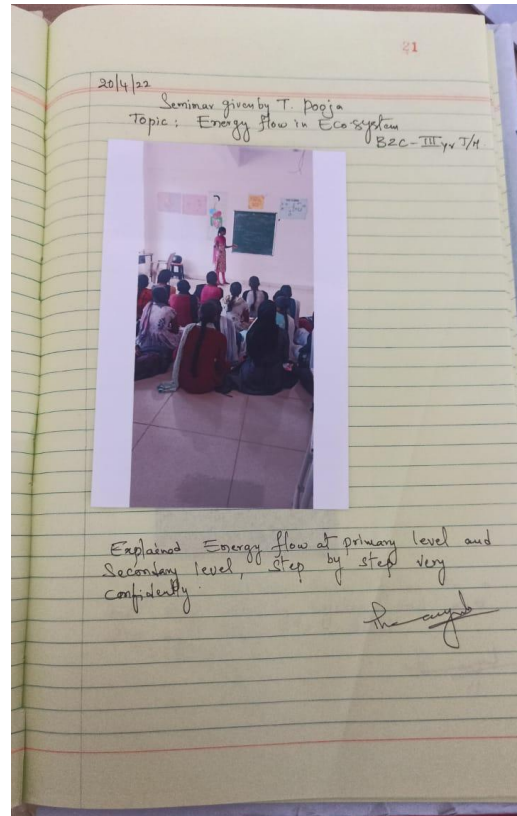 21
20/4/22
Seminar given by T. Pooja
Topic: Energy flow in Eco-system
BZC-III yr T/M
Explained Energy flow at primary level and
Secondary level, step by step very
confidently.